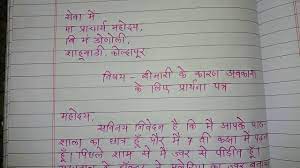 सेवा में
मा प्राचार्य महोदय,
वि मं डोणोली,
शाहूवाडी, कोल्हापूर
विषय - बीमारी के कारण अवकाश
के लिए प्रार्थना पत्र
महोदय,
सविनय निवेदन है कि मैं आपके पाठ-
शाला का छात्र हूँ और मैं 7 वी कक्षा में पढता
हूँ। पिछले शाम से मैं ज्वर से पीडीत हूँ।